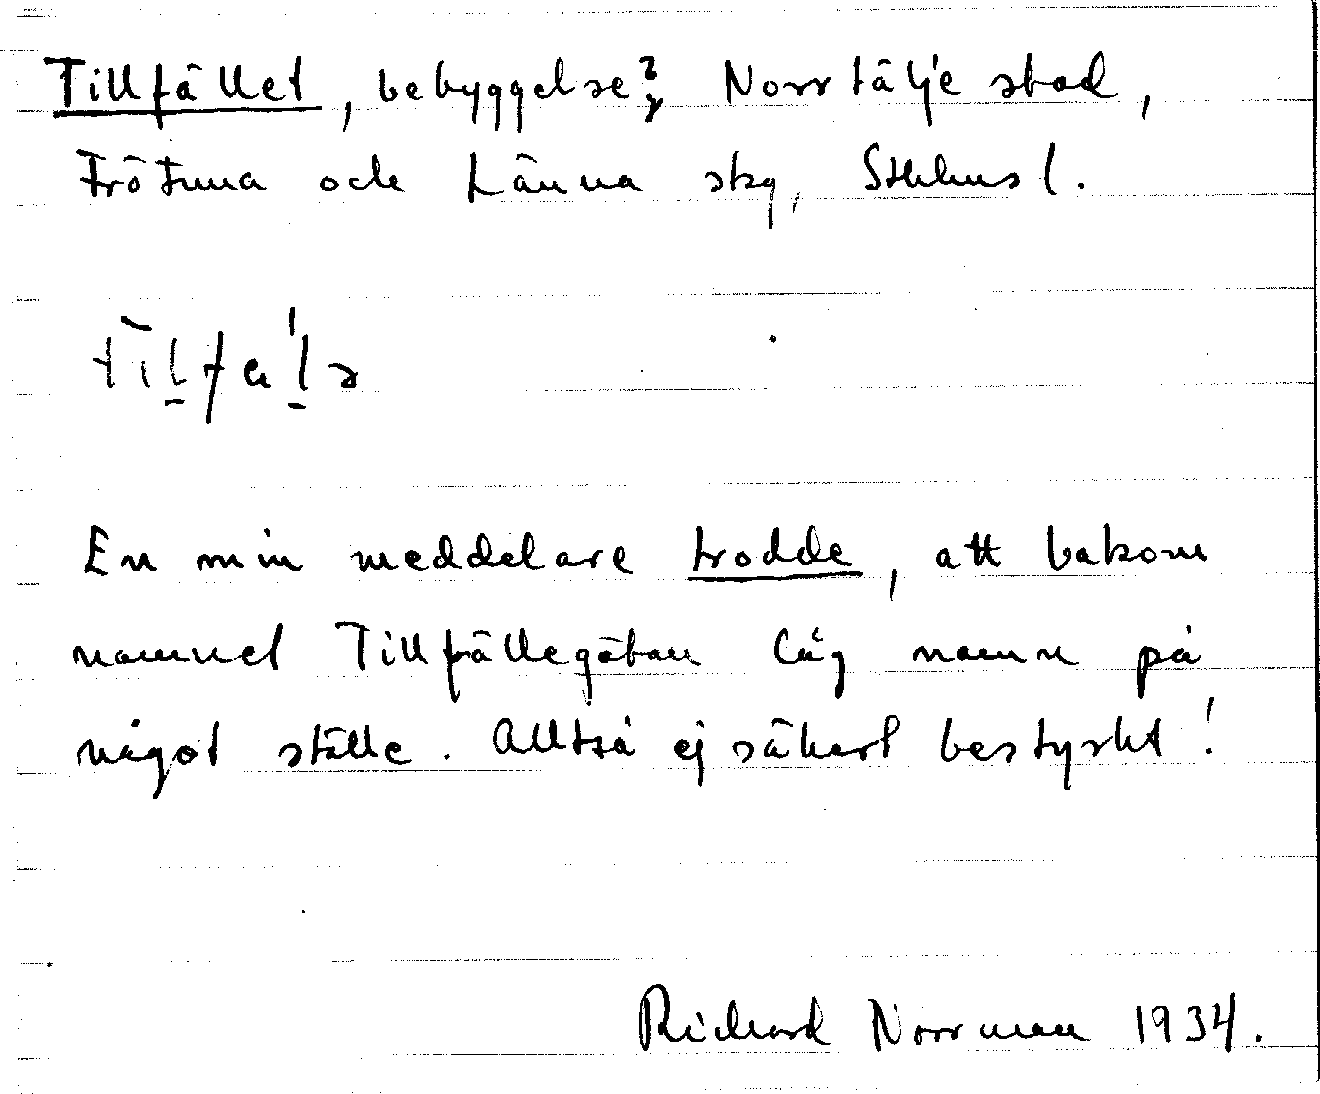 Tillfället, bebyggelse? Norrtälje stad,
Frötuna och Länna skg, Sthlms l.
En min meddelare trodde, att bakom
namnet Tillfällegatan låg namn på
något ställe. Alltså ej säkert bestyrkt!
Richard Norrman 1934.